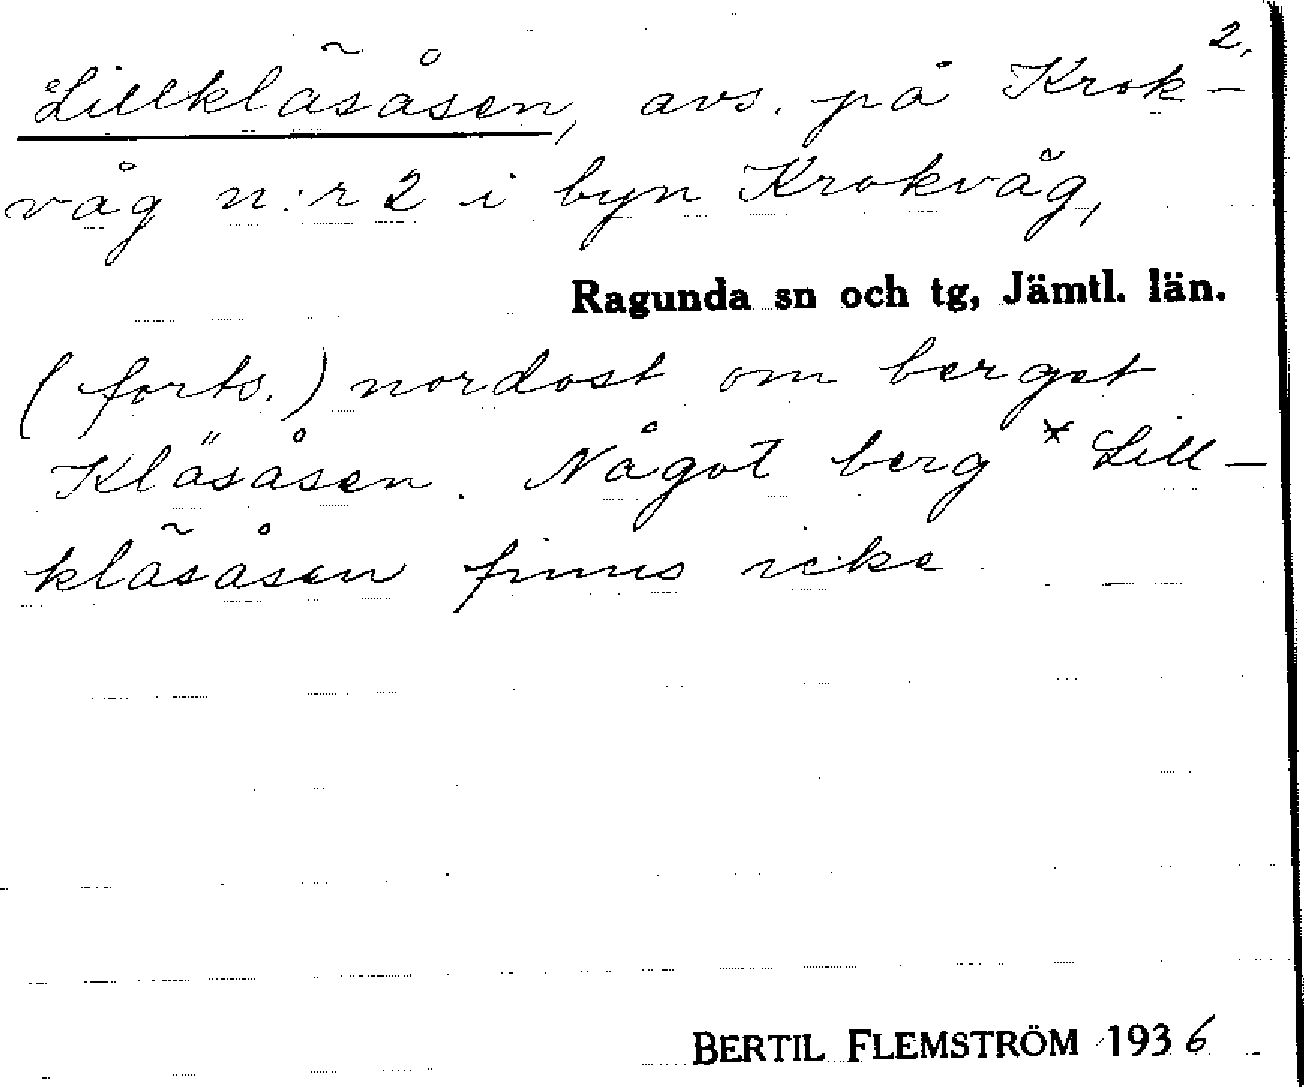 2.
Lillkläsåsen, avs. på Krok-
våg n:r 2 i byn Krokvåg,
Ragunda sn och tg, Jämtl. län.
(forts.) nordost om berget
Kläsåsen. Något berg * Lill-
kläsåsen finns icke.
BERTIL FLEMSTRÖM 1936